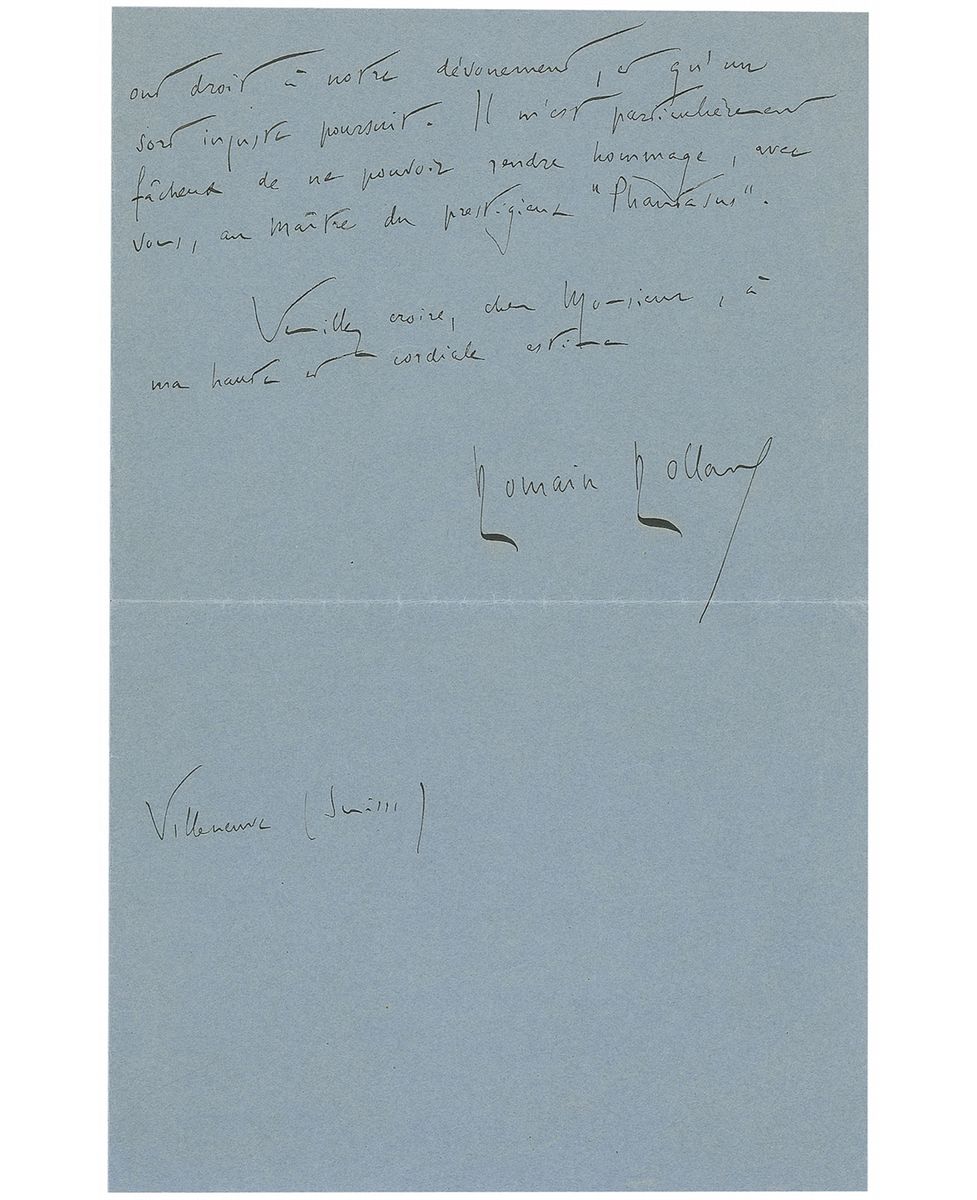 ont droit à notre dévouement, et qu'un
sort injuste poursuit. Il m'est particulièrement
fâcheux de ne pouvoir rendre hommage, avec
vous, au maître du prestigieux "Phantasus".
Veuillez croire, cher Monsieur, à
ma haute et cordiale estime
Romain Rolland
Villeneuve (Suisse)